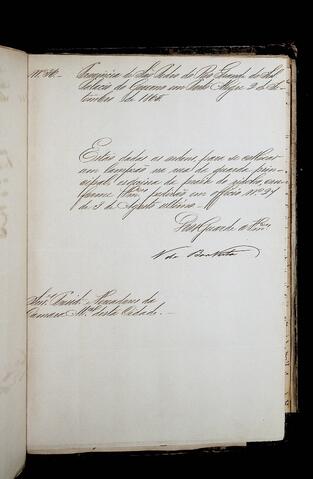 Provincia de São Pedro do Rio Grande do Sul
Palacio do Governo em Porto Alegre 2 de Se-
tembro de 1865.
Estão dadas as ordens para se collocar
um lampeão na rua da guarda prin-
cipal, esquina do becco do, con-
forme V.mces pedirão em officio nº 24
de 3 de Agosto ultimo.
Deos Guarde a V.mces
V. da Boa Vista
Snr.s Presid.e Vereadores da
Camara M.al desta Cidade.